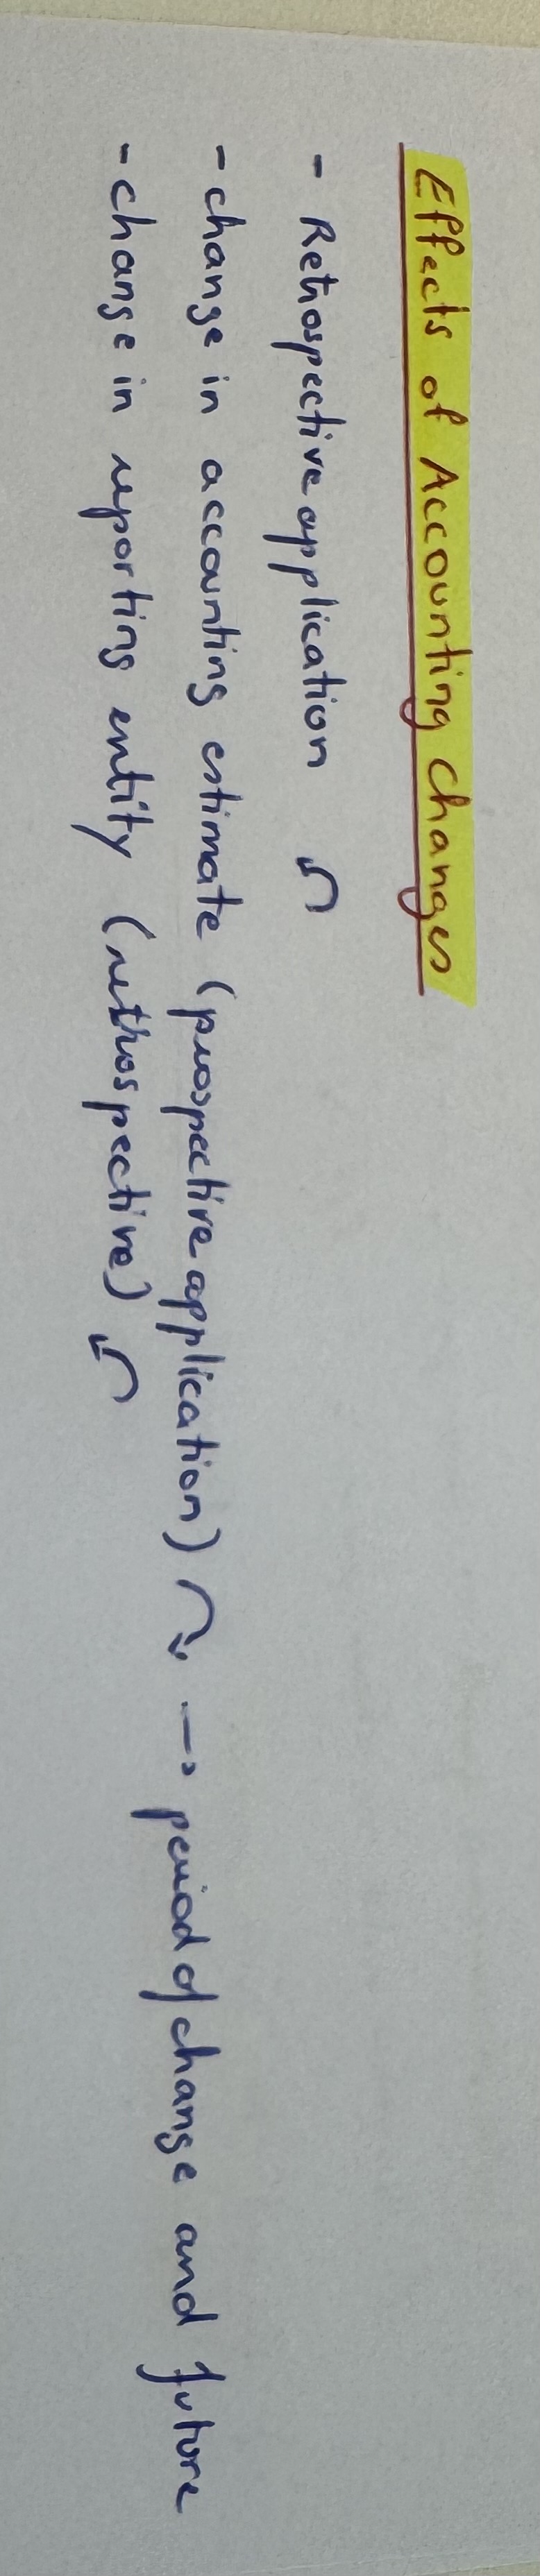 Effects of Accounting changes
- Retrospective application ↶
- change in accounting estimate (prospective application) ↷ → period of change and future
- change in reporting entity (rethospective) ↶